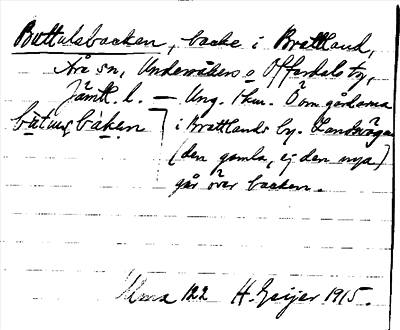 Buttulsbacken, backe i Brattland,
Åre sn, Undersåkers o Offerdals tg,
Jämtl. l. — Ung. 1 km. Ö om gårdarna
i Brattlands by. Landsvägen
(den gamla, ej den nya)
går över backen.
122 H. Geijer 1915.